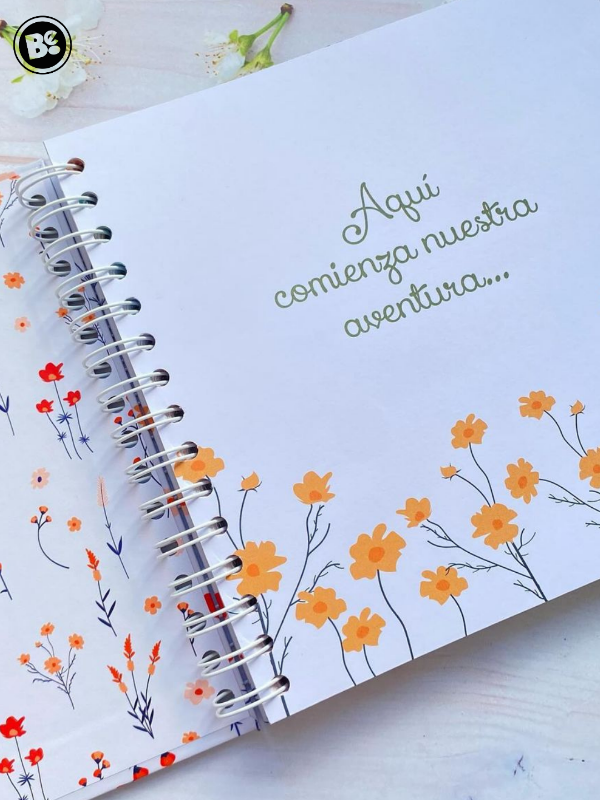 Be!
Aquí
comienza nuestra
aventura...